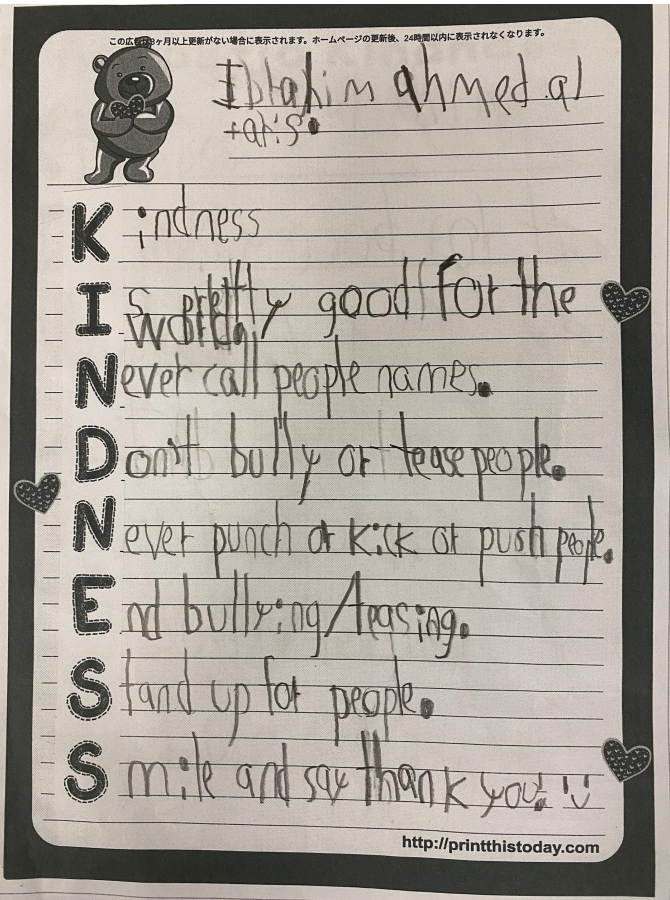 この広告は3ヶ月以上更新がない場合に表示されます。ホームページの更新後、24時間以内に表示されなくなります。
Ibrahim ahmed al
taris.
Kindness
Is pretty good for the
world.
Never call people names.
Don't bully or tease people.
Never punch or kick or push people.
End bullying/teasing.
Stand up for people.
Smile and say thank you! :)
http://printthistoday.com